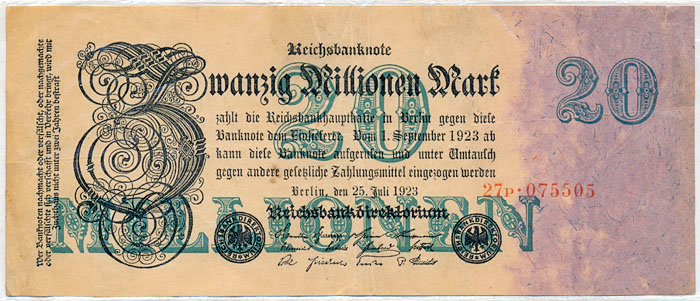 Reichsbanknote
Zwanzig Millionen Mark
20
20
zahlt die Reichsbankhauptkasse in Berlin gegen diese
Banknote dem Einlieferer. Vom 1. September 1923 ab
kann diese Banknote aufgerufen und unter Umtausch
gegen andere gesetzliche Zahlungsmittel eingezogen werden
Berlin, den 25. Juli 1923
27P·075505
Reichsbankdirektorium
MILLIONEN
Wer Banknoten nachmacht oder verfälscht, oder nachgemachte
oder verfälschte sich verschafft und in Verkehr bringt, wird mit
Zuchthaus nicht unter zwei Jahren bestraft